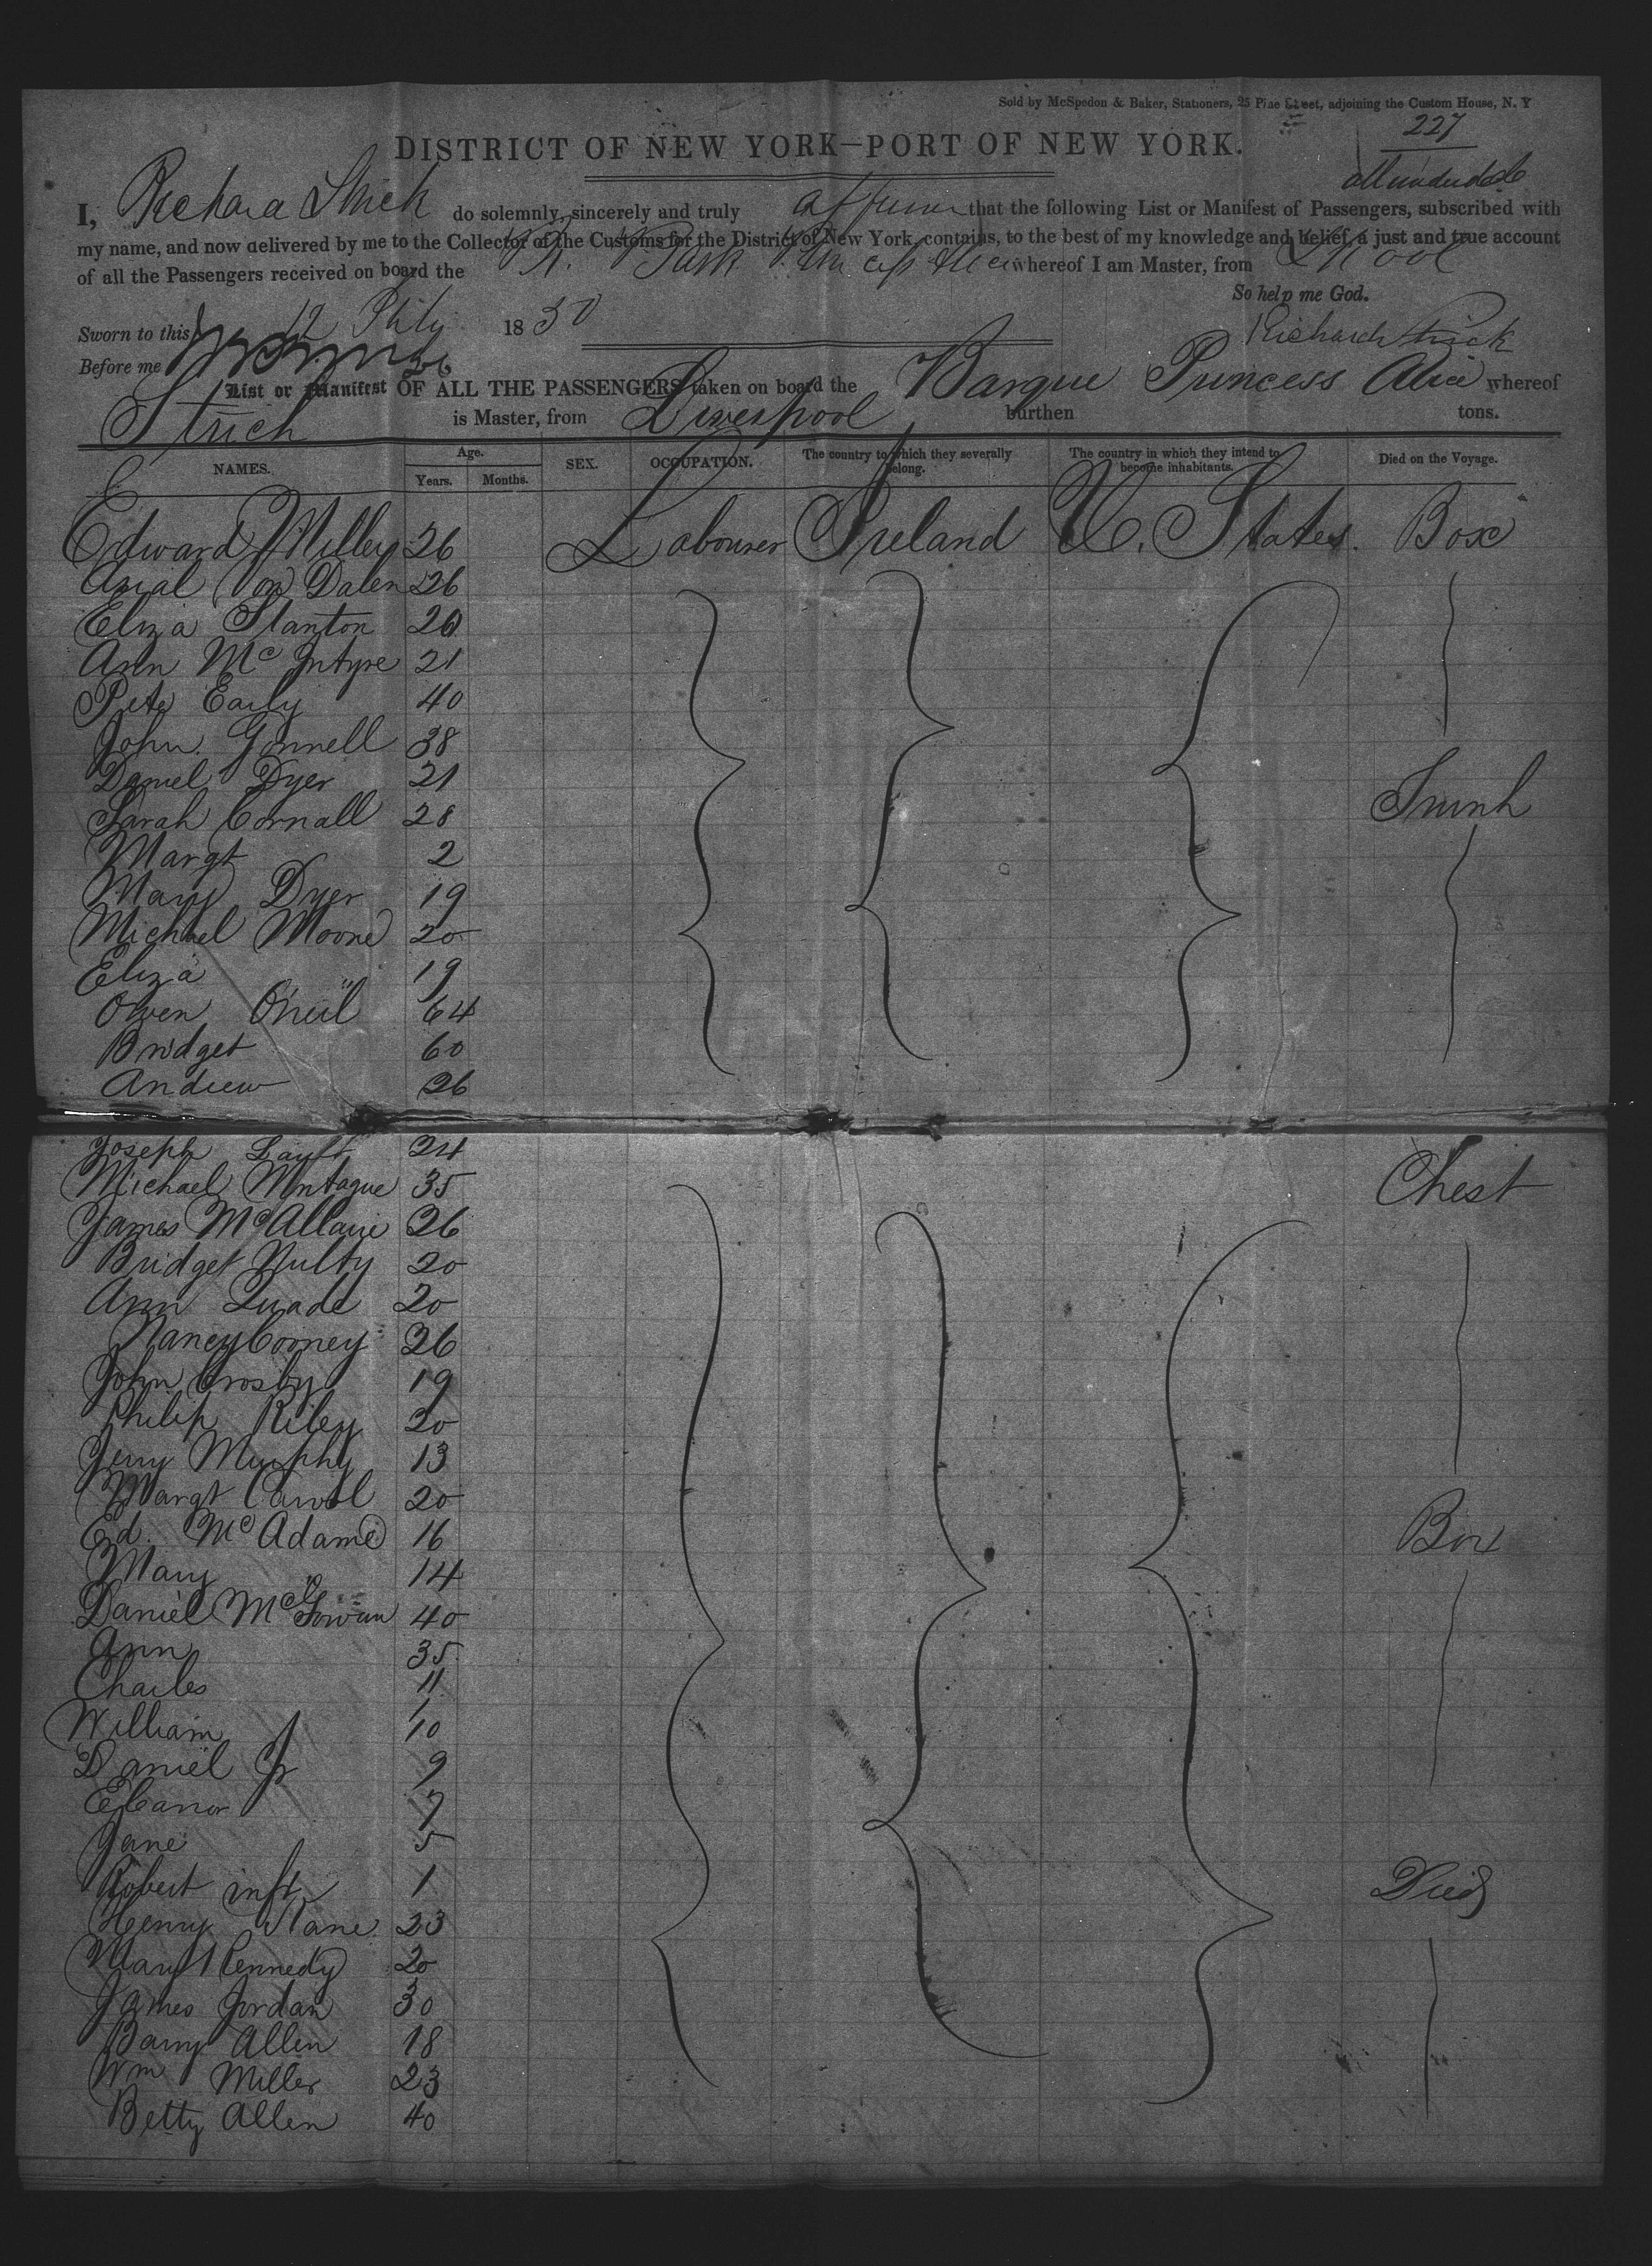 Sold by McSpedon & Baker, Stationers, 25 Pine Street, adjoining the Custom House, N. Y
227
DISTRICT OF NEW YORK—PORT OF NEW YORK.
I, Richard Strick do solemnly, sincerely and truly affirm that the following List or Manifest of Passengers, subscribed with
my name, and now delivered by me to the Collector of the Customs for the District of New York, contains, to the best of my knowledge and belief, a just and true account
of all the Passengers received on board the Br. Bark Princess Alice whereof I am Master, from L'pool
So help me God.
Sworn to this 12 1850
Richard Strick
Before me
List or Manifest OF ALL THE PASSENGERS taken on board the Barque Princess Alice whereof
Strick is Master, from Liverpool burthen tons.
NAMES. Age. Years. Months. SEX. OCCUPATION. The country to which they severally belong. The country in which they intend to become inhabitants. Died on the Voyage.
Edward Milley 26 Labourer Ireland U. States. Box
Von Dalen 26
Eliza Stanton 20
Ann McIntyre 21
Peter Early 40
John Gonnell 38
Daniel Dyer 21
Sarah Cornall 28 Trunk
Margt 2
Mary Dyer 19
Michael Moone 20
Eliza " 19
Owen O'neil 64
Bridget 60
Andrew 26
Joseph 24
Michael Mntague 35 Chest
James 26
Bridget Nulty 20
Ann Quade 20
Nancy Cooney 26
John Crosby 19
Philip Riley 20
Jerry Murphy 13
Margt Carrol 20
Ed. McAdame 16 Box
Mary 14
Daniel McGowan 40
Ann 35
Charles 11
William 10
Daniel Jr 9
Eleanor 7
Jane 5
Robert inft 1 Died
Henry Kane 23
Mary Kennedy 20
James Jordan 30
Barry Allen 18
Wm Miller 23
Betty Allen 40